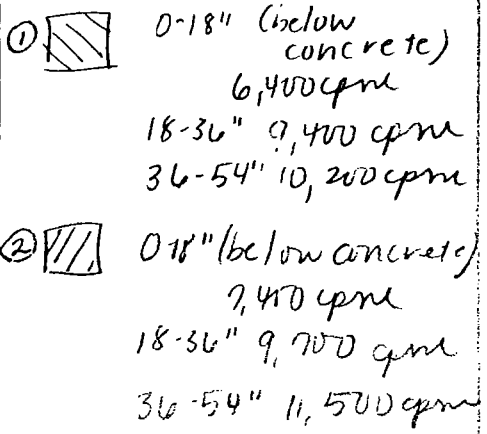 ① 0-18" (below
concrete)
6,400 cpm
18-36" cpm
36-54" 10,200 cpm
② 0-18" (below concrete)
cpm
18-36" 9,700 cpm
36-54" 11,500 cpm